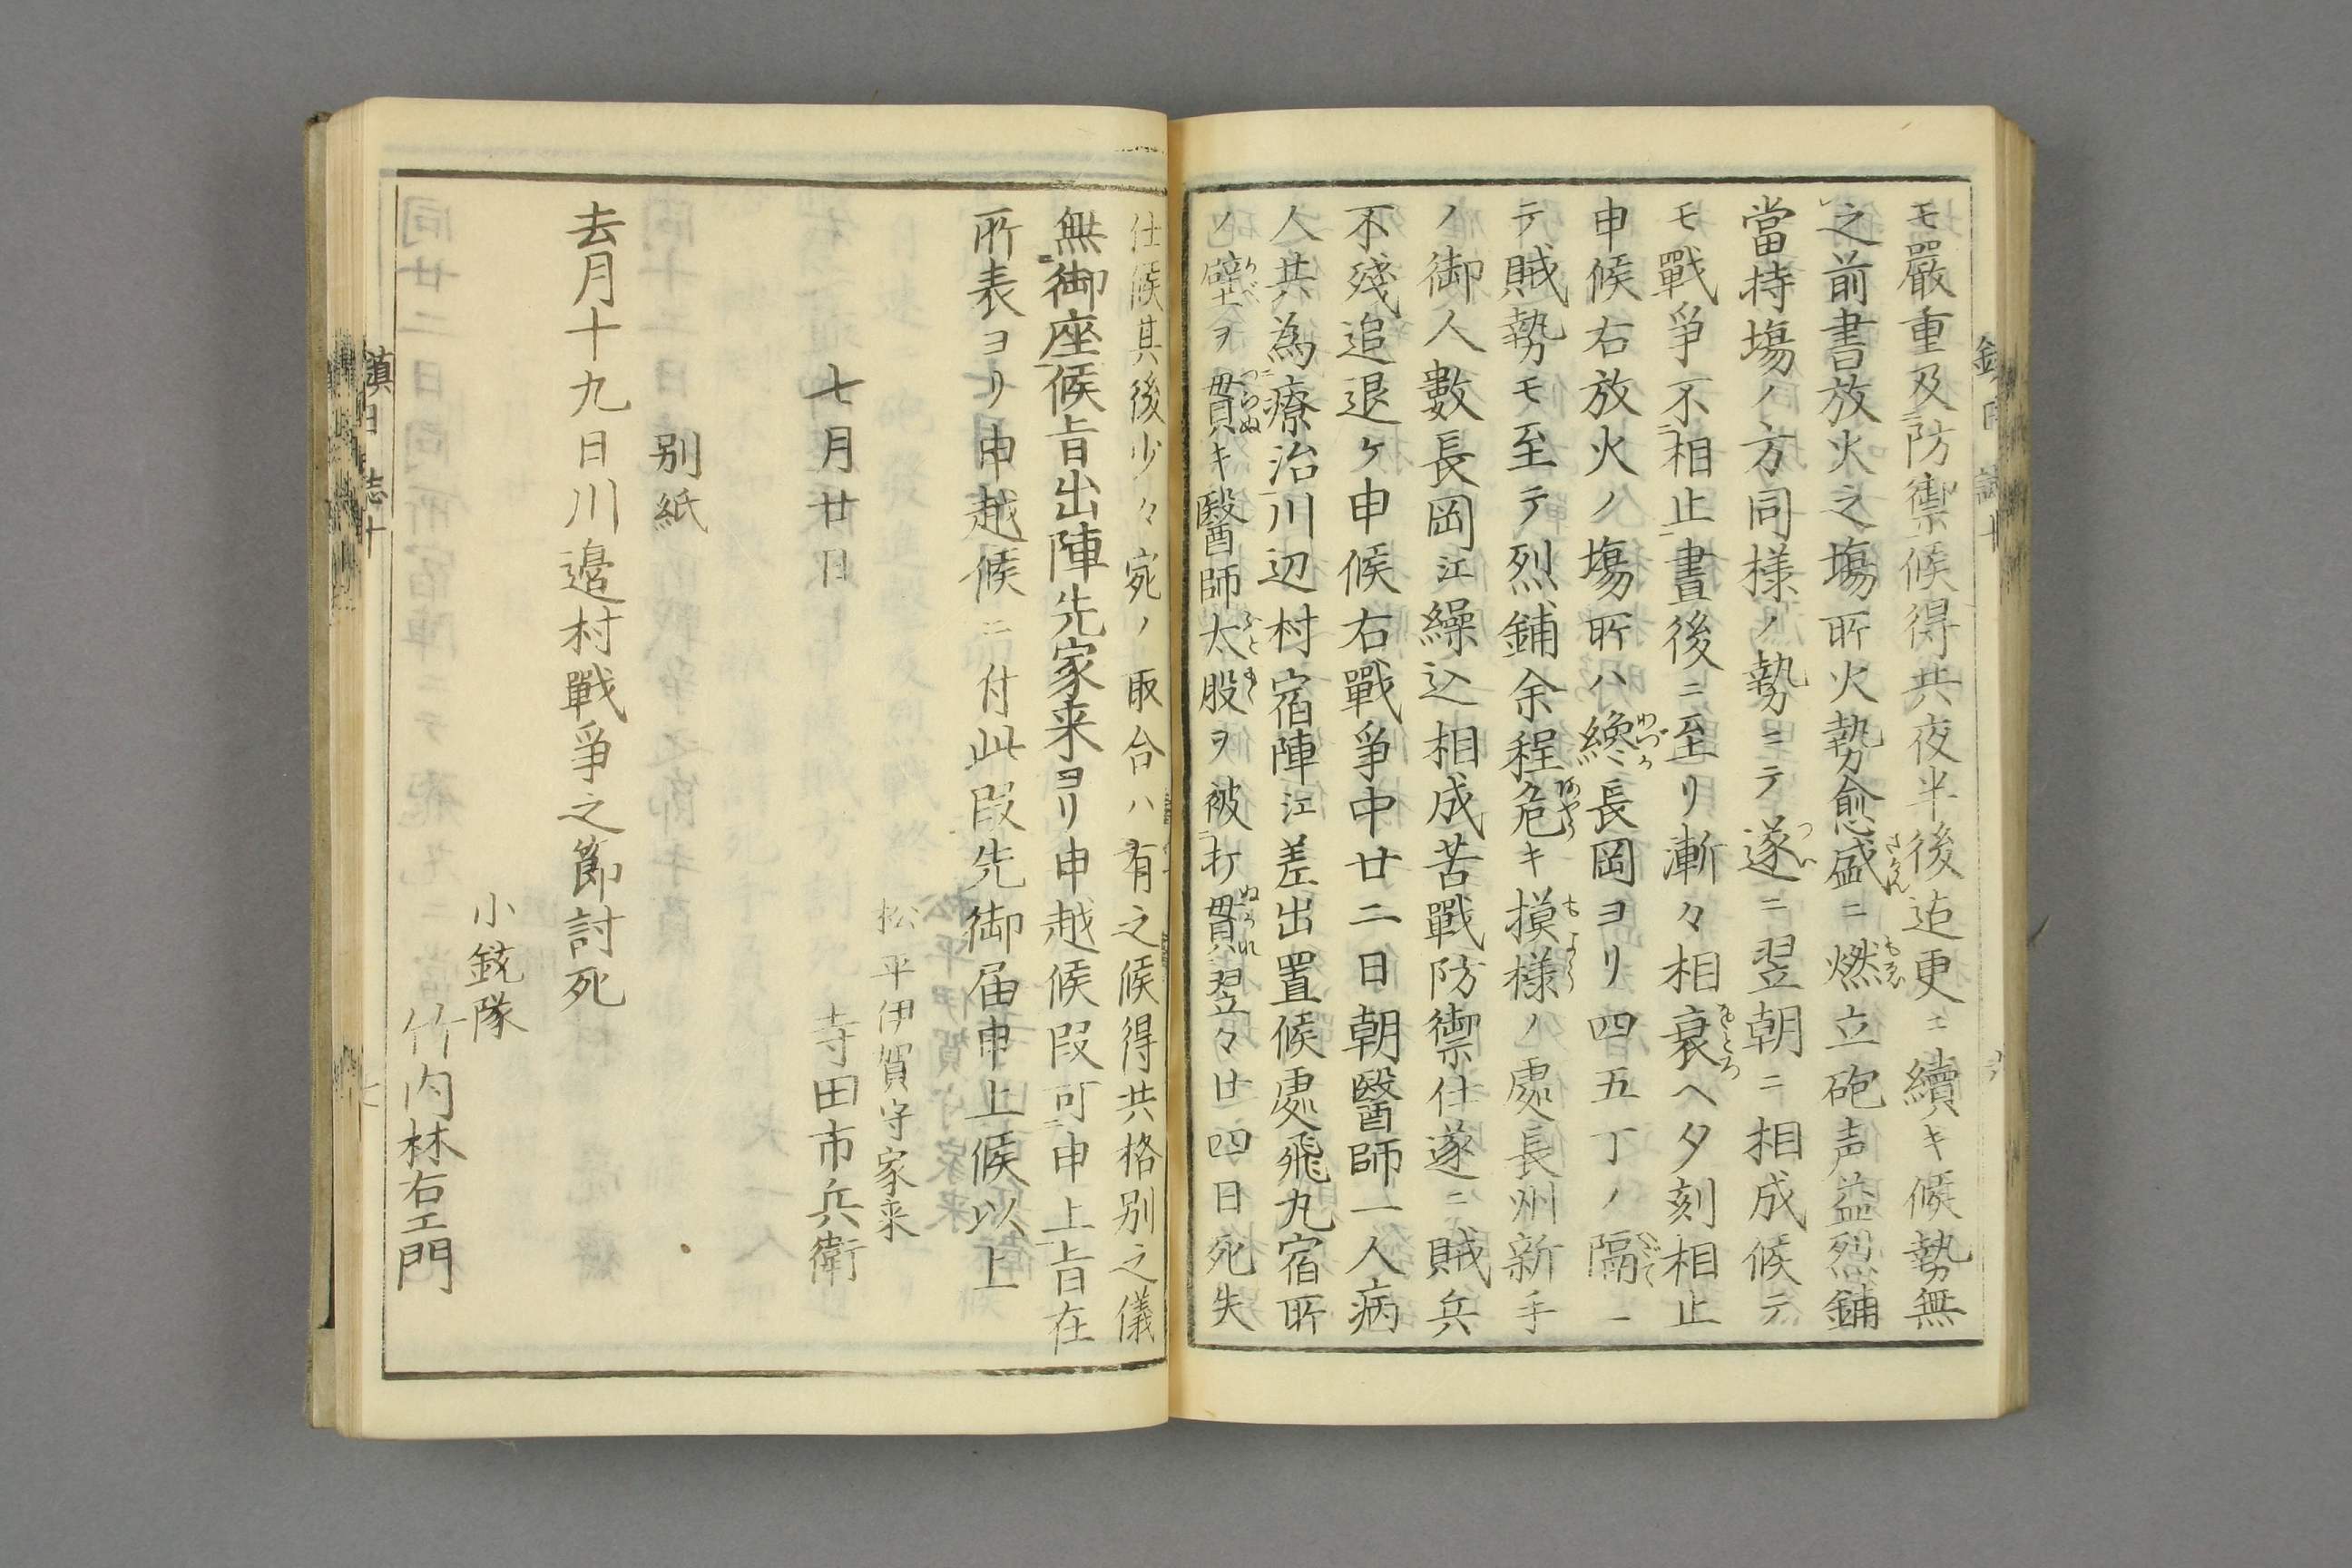 モ嚴重及防禦候得共夜半後迠更ニ續キ候勢無
之前書放火之塲所火勢愈盛ニ燃立砲声益烈鋪
當持塲ノ方同様ノ勢ニテ遂ニ翌朝ニ相成候テ
モ戰爭不相止晝後ニ至リ漸々相衰ヘ夕刻相止
申候右放火ノ塲所ハ纔長岡ヨリ四五丁ノ隔ニ
テ賊勢モ至テ烈鋪余程危キ摸様ノ處長州新手
ノ御人數長岡江繰込相成苦戰防禦仕遂ニ賊兵
不殘追退ケ申候右戰爭中廿二日朝醫師一人病
人共為療治川辺村宿陣江差出置候處飛丸宿所
ノ壁ヲ貫キ醫師太股ヲ被打貫翌々廿四日死失
仕候其後少々宛ノ取合ハ有之候得共格别之儀
無御座候旨出陣先家来ヨリ申越候段可申上旨在
所表ヨリ申越候ニ付此段先御届申上候以上
松平伊賀守家来
七月廿日　寺田市兵衛
别紙
去月十九日川邉村戰爭之節討死
小銃隊
竹内林右エ門
鎮日誌十